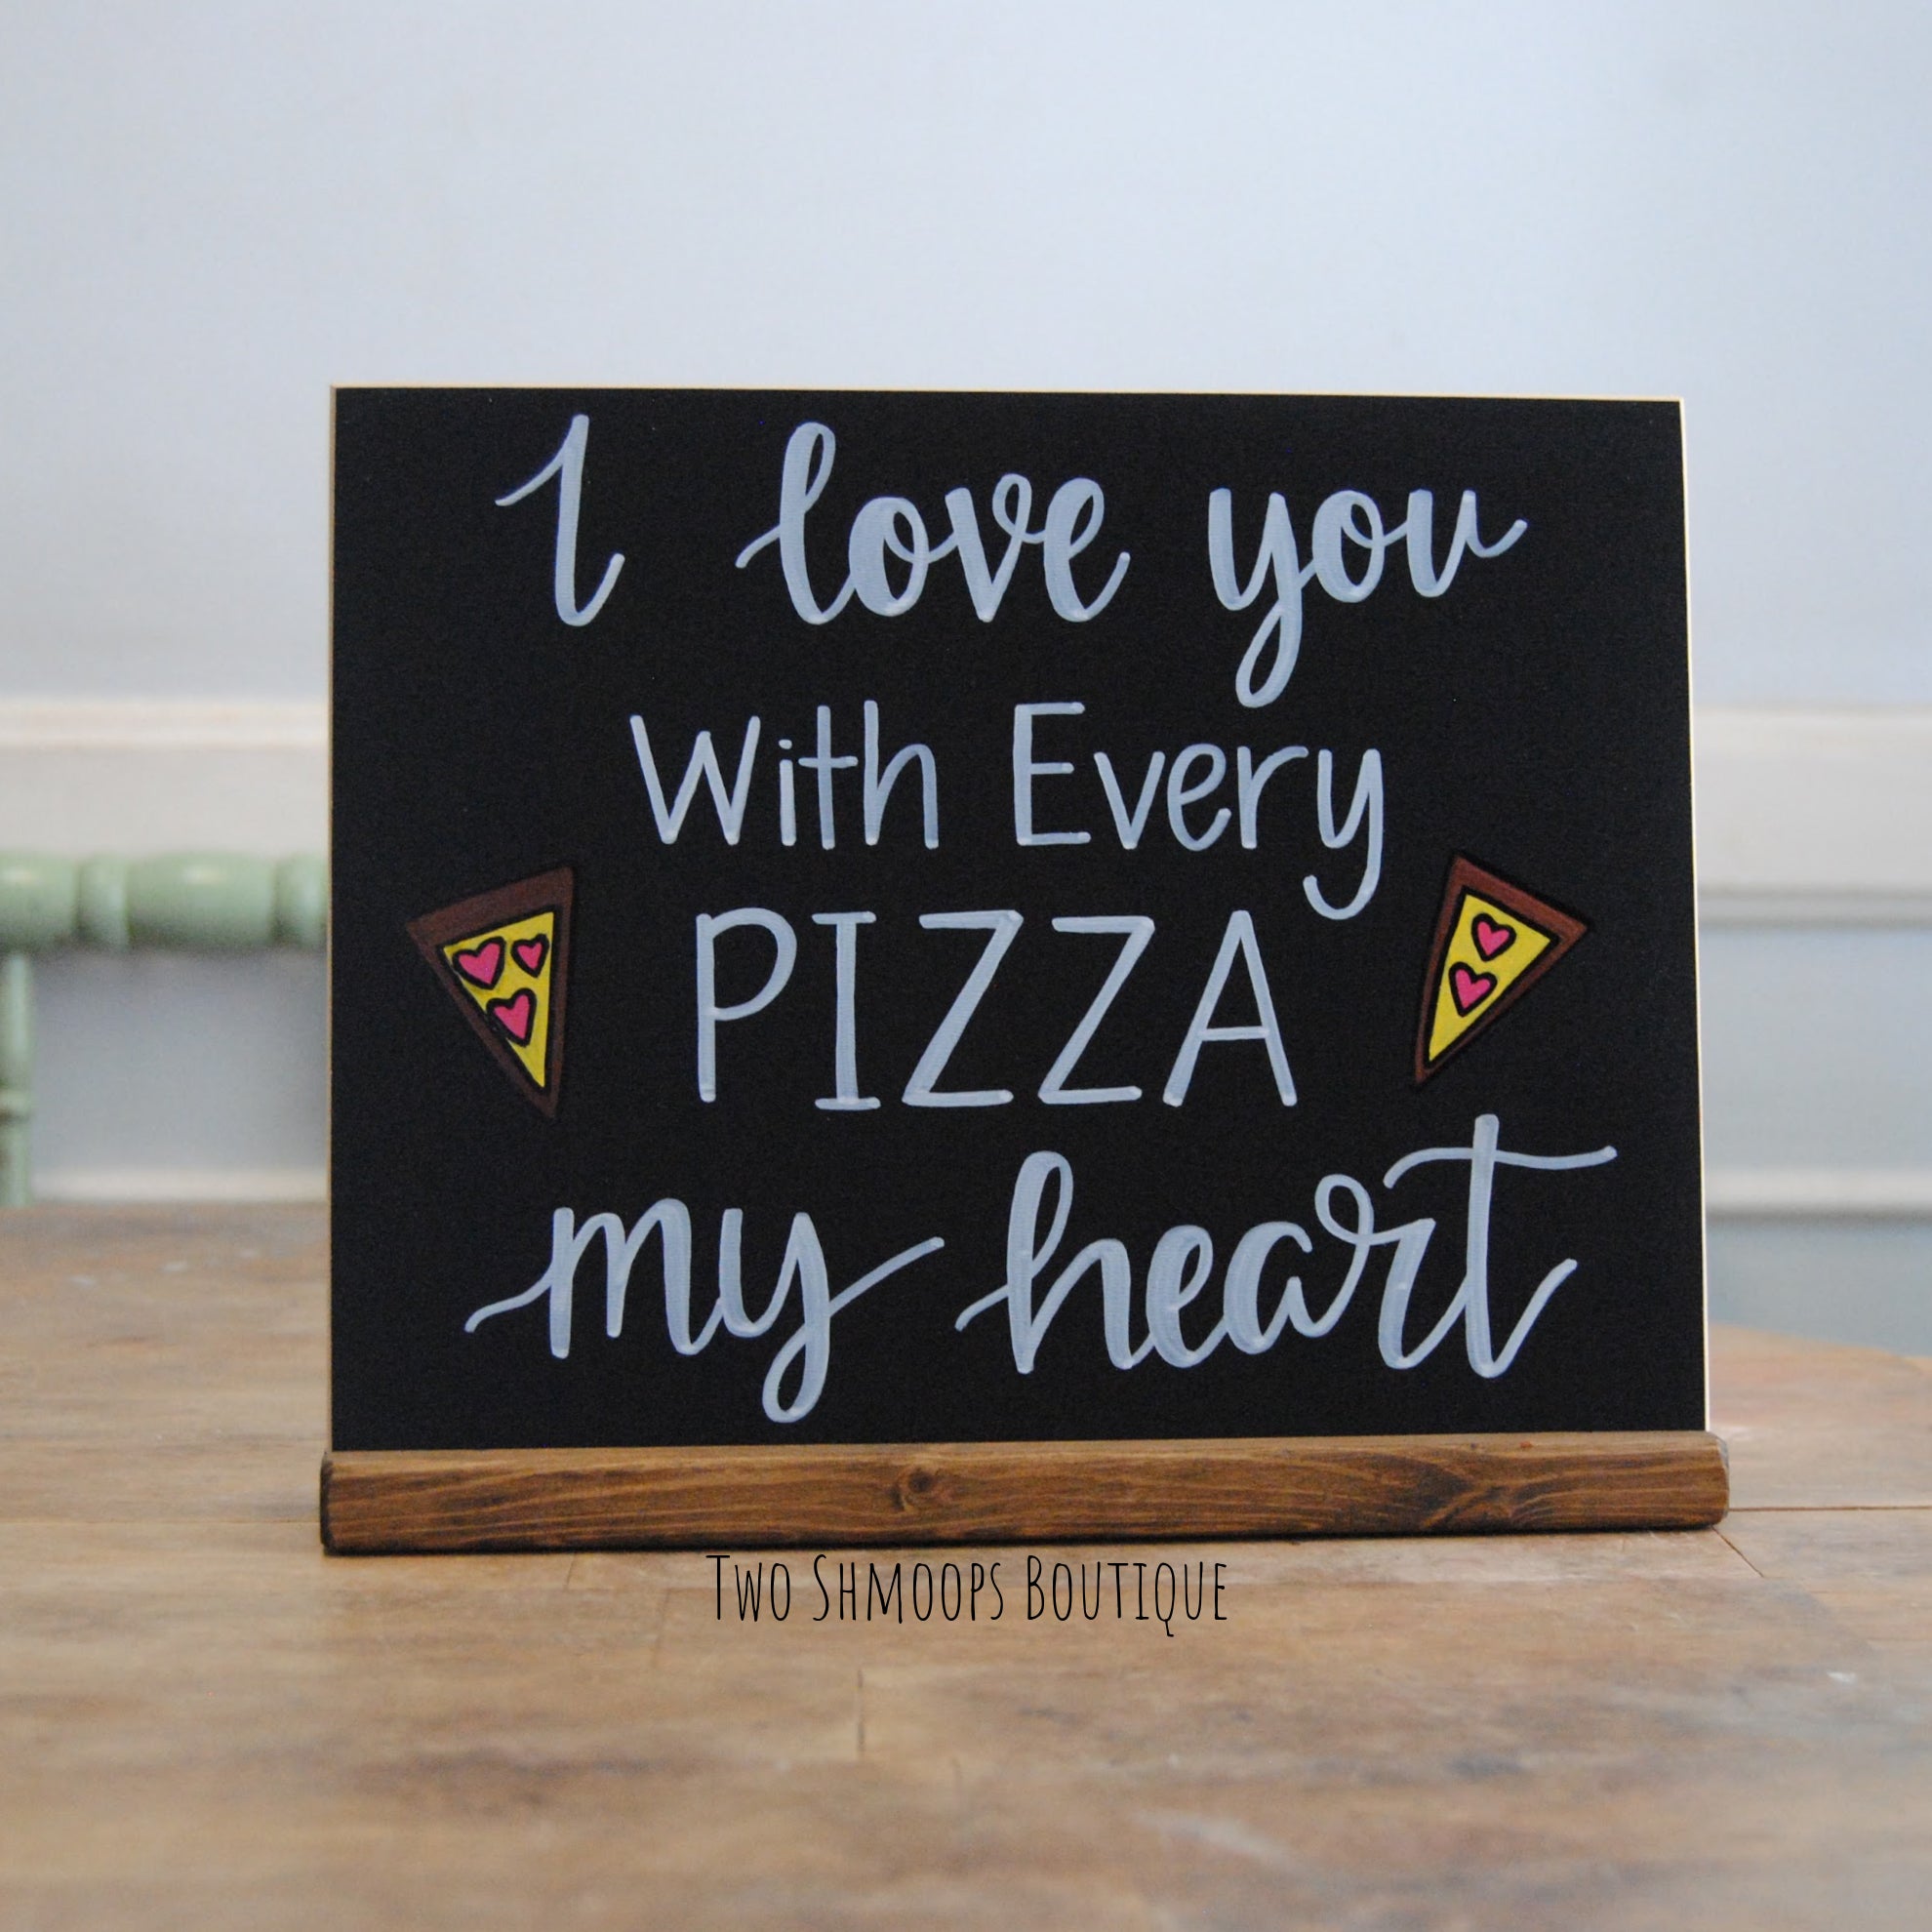 I love you
With Every
PIZZA
my heart
Two Shmoops Boutique